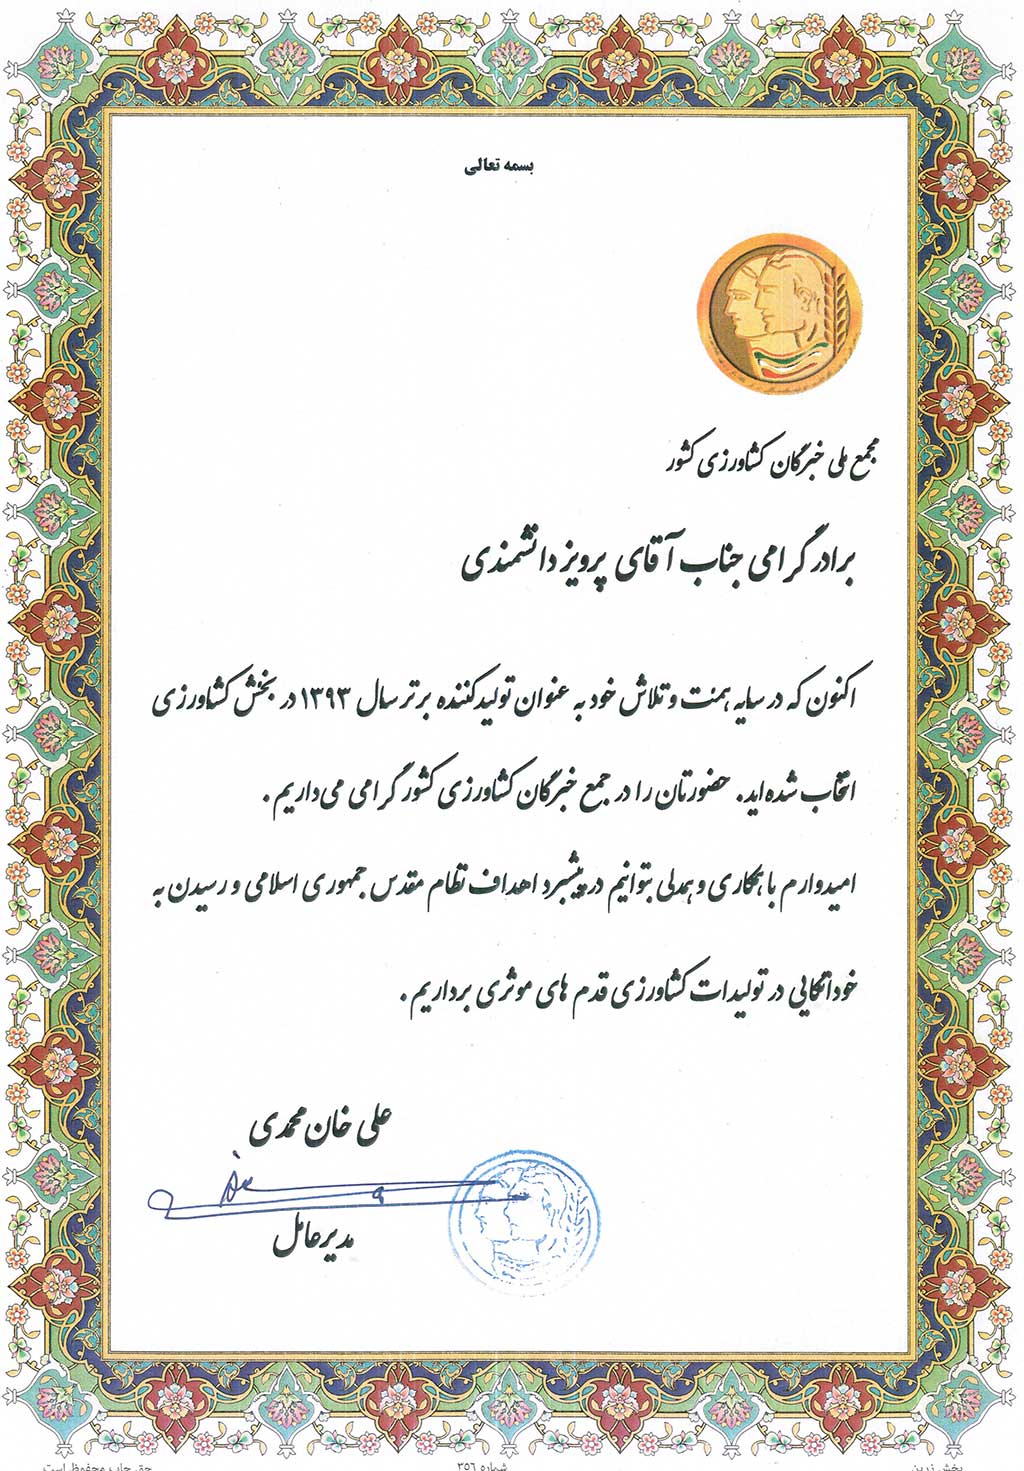 بسمه تعالی
مجمع ملی خبرگان کشاورزی کشور
برادر گرامی جناب آقای پرویز دانشمندی
اکنون که در سایه همت و تلاش خود به عنوان تولیدکننده برتر سال ۱۳۹۳ در بخش کشاورزی
انتخاب شده‌اید. حضورتان را در جمع خبرگان کشاورزی کشور گرامی می‌داریم.
امیدوارم با همکاری و همدلی بتوانیم در پیشبرد اهداف نظام مقدس جمهوری اسلامی و رسیدن به
خوداتکایی در تولیدات کشاورزی قدم های موثری برداریم.
علی خان محمدی
مدیرعامل
پخش زرین شماره ۳۵۶ حق چاپ محفوظ است